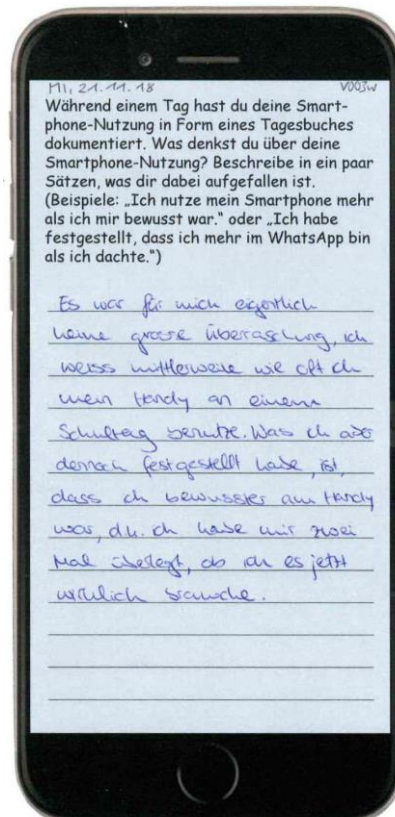 MI, 21.11.18 V003w
Während einem Tag hast du deine Smart-
phone-Nutzung in Form eines Tagesbuches
dokumentiert. Was denkst du über deine
Smartphone-Nutzung? Beschreibe in ein paar
Sätzen, was dir dabei aufgefallen ist.
(Beispiele: „Ich nutze mein Smartphone mehr
als ich mir bewusst war.“ oder „Ich habe
festgestellt, dass ich mehr im WhatsApp bin
als ich dachte.“)
Es war für mich eigentlich
keine grosse Überaschung, ich
weiss mittlerweile wie oft ich
mein Handy an einem
Schultag benutze. Was ich aber
dennoch festgestellt habe, ist,
dass ich bewusster am Handy
war, d.h. ich habe mir zwei
Mal überlegt, ob ich es jetzt
wirklich brauche.